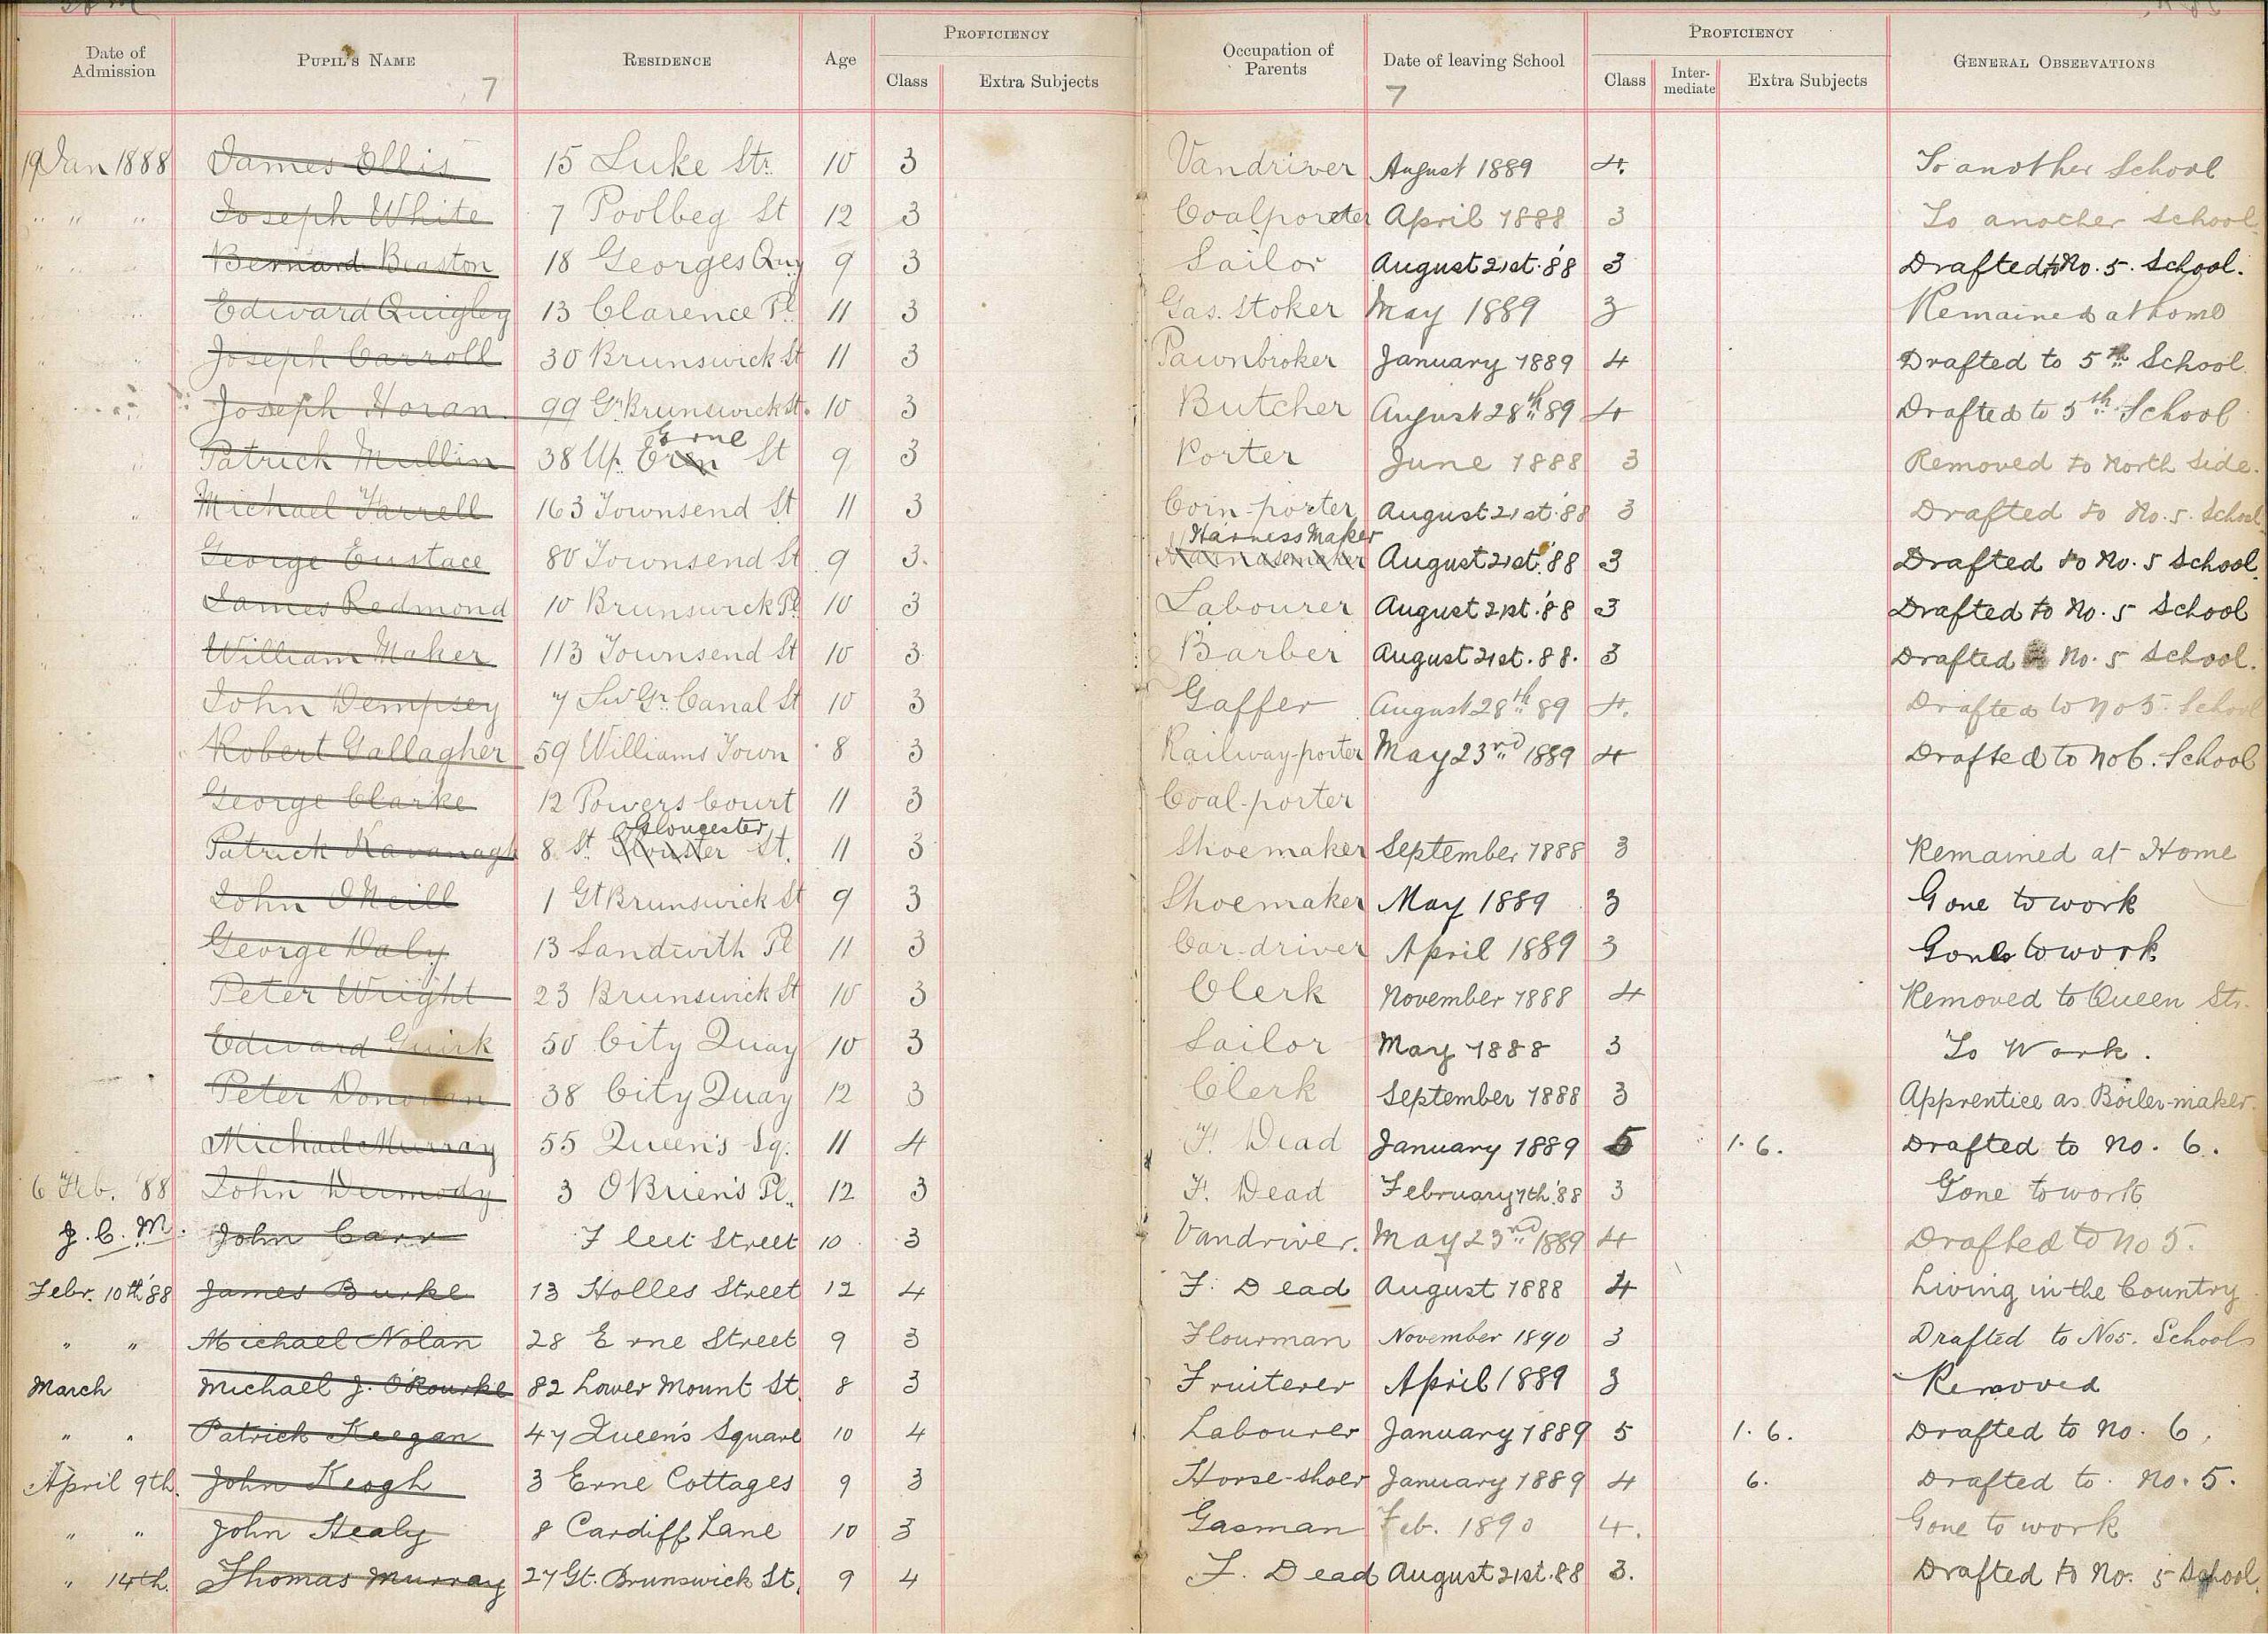 Date of Admission Pupil's Name Residence Age Proficiency Class Extra Subjects Occupation of Parents Date of leaving School Proficiency Class Inter-mediate Extra Subjects General Observations
7 7
19 Jan 1888 James Ellis 15 Luke Str. 10 3 Vandriver August 1889 4. To another School
" " " Joseph White 7 Poolbeg St 12 3 Coalporter April 1888 3 To another School
" " " Bernard Beaston 18 Georges Quy 9 3 Sailor August 21st. '88 3 Drafted to No. 5. School.
Edward Quigley 13 Clarence Pl. 11 3 Gas. Stoker May 1889 3 Remained at home
Joseph Carroll 30 Brunswick St 11 3 Pawnbroker January 1889 4 Drafted to 5th School
Joseph Horan 99 Gt Brunswick St. 10 3 Butcher August 28th 89 4 Drafted to 5th School
Patrick Mullin 38 Up. Eren Erne St 9 3 Porter June 1888 3 Removed to North Side.
Michael Farrell 163 Townsend St 11 3 Corn-porter August 21st. '88 3 Drafted to No. 5. School
George Eustace 80 Townsend St 9 3. Harness Maker August 21st. '88 3 Drafted to No. 5 School.
James Redmond 10 Brunswick Pl. 10 3 Labourer August 21st. '88 3 Drafted to No. 5 School
William Maher 113 Townsend St 10 3 Barber August 21st. 88. 3 Drafted No. 5 School.
John Dempsey 7 Gr. Canal St 10 3 Gaffer August 28th 89 4. Drafted to No 5. School
Robert Gallagher 59 Williams Town 8 3 Railway-porter May 23rd 1889 4 Drafted to No 6. School
George Clarke 12 Powers Court 11 3 Coal-porter
Patrick Kavanagh 8 St. Glouster Gloucester St. 11 3 Shoemaker September 1888 3 Remained at Home
John O'Neill 1 Gt Brunswick St 9 3 Shoemaker May 1889 3 Gone to work
George Daly 13 Sandwith Pl 11 3 Car-driver April 1889 3 Gone to work
Peter Wright 23 Brunswick St 10 3 Clerk November 1888 4 Removed to Queen Str.
Edward Quirk 50 City Quay 10 3 Sailor May 1888 3 To Work.
Peter Donovan 38 City Quay 12 3 Clerk September 1888 3 Apprentice as Boiler-maker.
Michael Murray 55 Queen's Sq. 11 4 F. Dead January 1889 5 1. 6. Drafted to No. 6.
6 Feb. '88 John Dermody 3 O'Brien's Pl. 12 3 F. Dead February 7th. '88 3 Gone to work
J. C. M. John Carr Fleet Street 10 3 Vandriver. May 23rd 1889 4 Drafted to No 5.
Febr. 10th '88 James Burke 13 Holles Street 12 4 F. Dead August 1888 4 Living in the Country
" " Michael Nolan 28 Erne Street 9 3 Flourman November 1890 3 Drafted to No 5. Schools
March Michael J. O'Rourke 82 Lower Mount St. 8 3 Fruiterer April 1889 3 Removed
" " Patrick Keegan 47 Queen's Square 10 4 Labourer January 1889 5 1. 6. Drafted to No. 6.
April 9th. John Keogh 3 Erne Cottages 9 3 Horse-shoer January 1889 4 6. Drafted to No. 5.
" " John Healy 8 Cardiff Lane 10 3 Gasman Feb. 1890 4. Gone to work
" 14th. Thomas Murray 27 Gt. Brunswick St. 9 4 F. Dead August 21st. 88 3. Drafted to No. 5 School